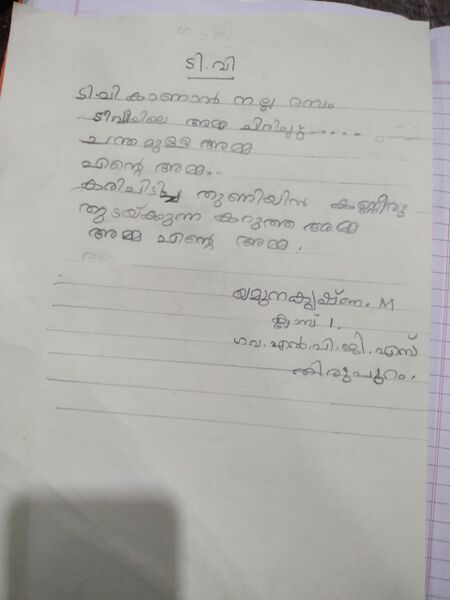 ടി.വി
ടി.വി കാണാൻ നല്ല രസം
ടീവീയിലെ അമ്മ ചിരിച്ചു.....
ചന്തമുള്ള അമ്മ
എന്റെ അമ്മ..
കരിപിടിച്ച തുണിയിൽ കണ്ണീരു
തുടയ്ക്കുന്ന കറുത്ത അമ്മ
അമ്മ എന്റെ അമ്മ.
യമുനകൃഷ്ണ. M
ക്ലാസ് 1.
ഗവ.എൻ.വി.ജി.എസ്
തിരുപുറം.